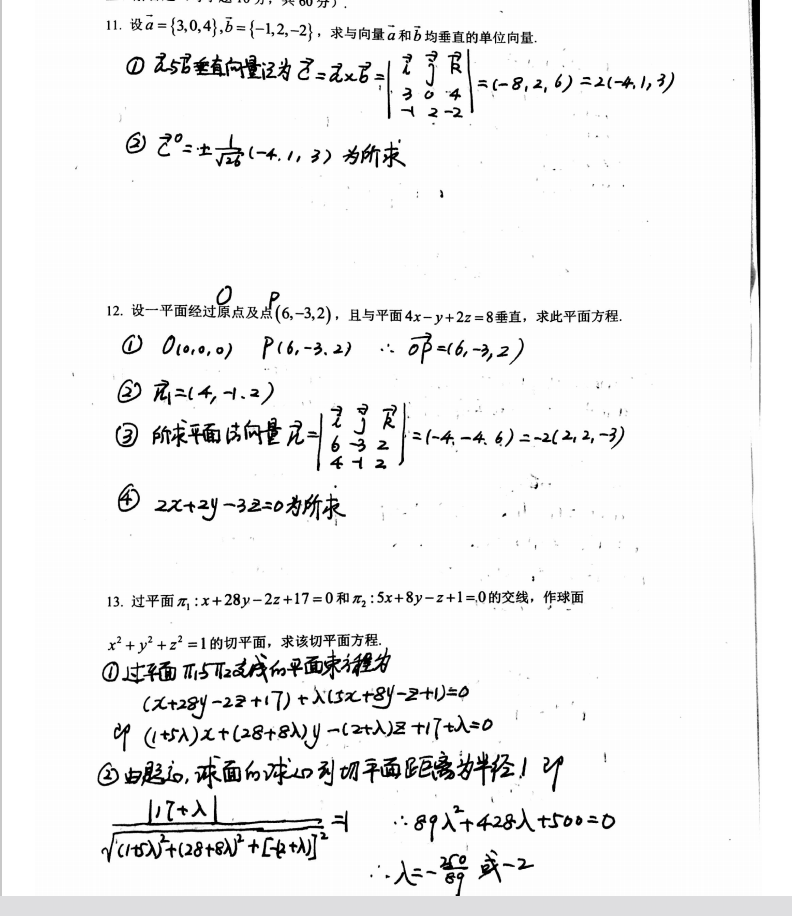 11. 设a⃗={3,0,4},b⃗={-1,2,-2}，求与向量a⃗和b⃗均垂直的单位向量.
① a⃗与b⃗垂直向量记为 c⃗=a⃗×b⃗=| i⃗ j⃗ k⃗ ; 3 0 4 ; -1 2 -2 |=(-8,2,6)=2(-4,1,3)
② c⃗⁰=±1/√26(-4,1,3) 为所求
O P
12. 设一平面经过原点及点(6,-3,2)，且与平面4x-y+2z=8垂直，求此平面方程.
① O(0,0,0) P(6,-3,2) ∴ OP⃗=(6,-3,2)
② n⃗₁=(4,-1,2)
③ 所求平面法向量n⃗=| i⃗ j⃗ k⃗ ; 6 -3 2 ; 4 -1 2 |=(-4,-4,6)=-2(2,2,-3)
④ 2x+2y-3z=0为所求
13. 过平面π₁:x+28y-2z+17=0和π₂:5x+8y-z+1=0的交线，作球面
x²+y²+z²=1的切平面，求该切平面方程.
①过平面π₁与π₂交成的平面束方程为
(x+28y-2z+17)+λ(5x+8y-z+1)=0
即 (1+5λ)x+(28+8λ)y-(2+λ)z+17+λ=0
②由题意,球面的球心到切平面距离为半径1 即
|17+λ|/√((1+5λ)²+(28+8λ)²+[-(2+λ)]²)=1 ∴89λ²+428λ+500=0
∴λ=-250/89 或-2